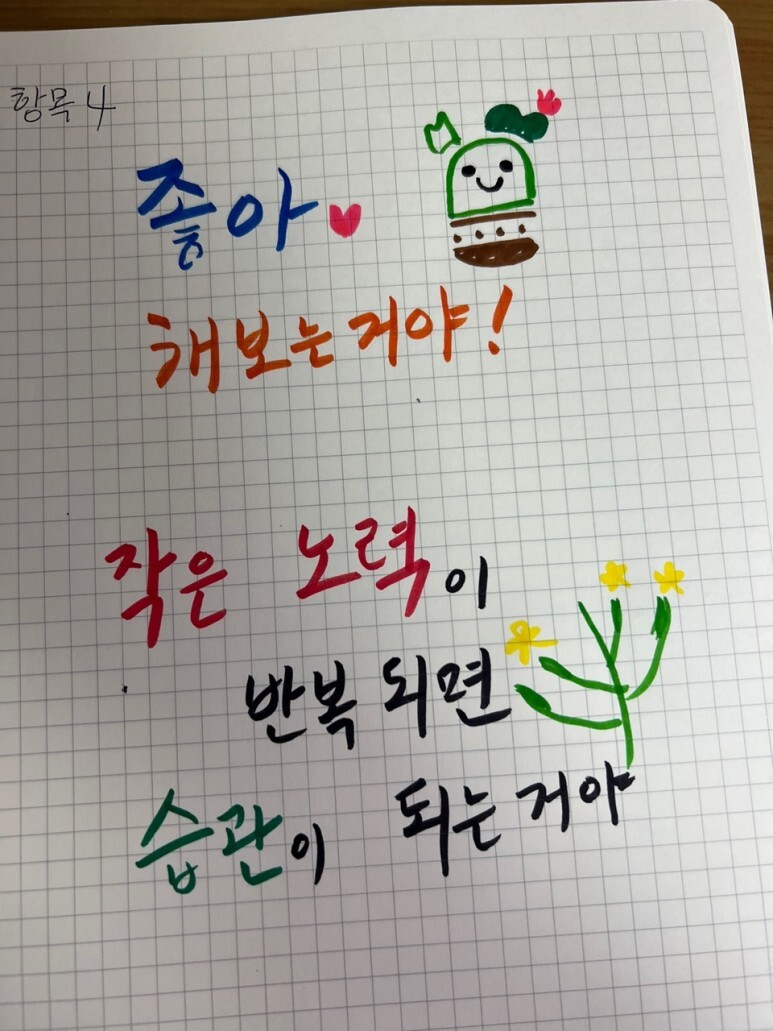 항목 4
좋아
해보는거야!
작은 노력이
반복 되면
습관이 되는거야